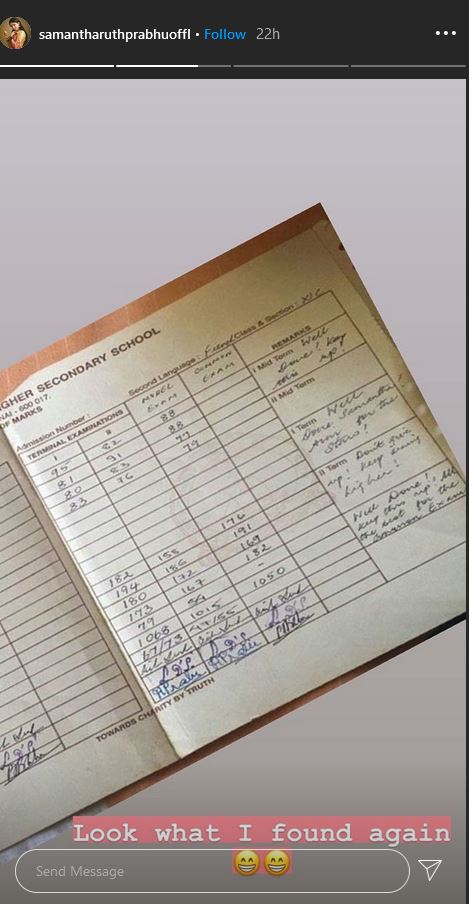 samantharuthprabhuoffl • Follow 22h
GHER SECONDARY SCHOOL
NAI - 600 017.
OF MARKS
Admission Number :
Second Language : French Class & Section : XI C
TERMINAL EXAMINATIONS
MODEL EXAM
COMMON EXAM
REMARKS
I II
95 82 88
81 91 88
80 83 77
83 76 79
182 155 176
194 186 191
180 172 169
173 167 182
79 54 -
1068 1015 1050
67/73 47/55
I Mid Term Well
Done! Keep
this up!
II Mid Term
I Term Well
Done Samantha!
Aim for the
Stars!
II Term Don't give
up! Keep
higher!
Well Done! 
keep this up! All
the best for the
Exam
TOWARDS CHARITY BY TRUTH
Look what I found again
😁😁
Send Message